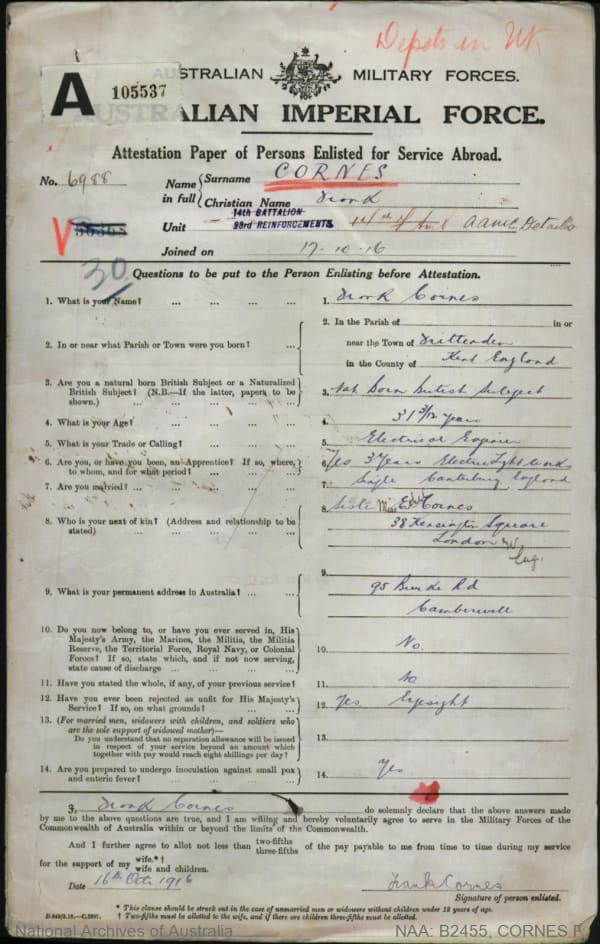 Depots in UK
A 105537
AUSTRALIAN MILITARY FORCES.
AUSTRALIAN IMPERIAL FORCE.
Attestation Paper of Persons Enlisted for Service Abroad.
No. 6988 Name in full { Surname CORNES
Christian Name Frank
Unit 14th BATTALION 23rd REINFORCEMENTS AAMC Details
Joined on 17.10.16
30
Questions to be put to the Person Enlisting before Attestation.
1. What is your Name? ... ... ... ... 1. Frank Cornes
2. In or near what Parish or Town were you born? ... 2. In the Parish of in or
near the Town of
in the County of Kent England
3. Are you a natural born British Subject or a Naturalized British Subject? (N.B.—If the latter, papers to be shown.) ... 3. Nat. Born British Subject
4. What is your Age? ... ... ... ... 4. 31 3/12 years
5. What is your Trade or Calling? ... ... ... 5. Electrical Engineer
6. Are you, or have you been, an Apprentice? If so, where, to whom, and for what period? ... 6. Yes 3 Years Electric Light Works
Canterbury England
7. Are you married? ... ... ... ... 7. Single
8. Who is your next of kin? (Address and relationship to be stated) ... 8. Sister Miss Cornes
38 Kensington Square
London W.
Eng.
9. What is your permanent address in Australia? ... ... 9. 95 Burke Rd
Camberwell
10. Do you now belong to, or have you ever served in, His Majesty's Army, the Marines, the Militia, the Militia Reserve, the Territorial Force, Royal Navy, or Colonial Forces? If so, state which, and if not now serving, state cause of discharge ... 10. No.
11. Have you stated the whole, if any, of your previous service? 11. No
12. Have you ever been rejected as unfit for His Majesty's Service? If so, on what grounds? ... 12. Yes Eyesight
13. (For married men, widowers with children, and soldiers who are the sole support of widowed mother)—
Do you understand that no separation allowance will be issued in respect of your service beyond an amount which together with pay would reach eight shillings per day? 13.
14. Are you prepared to undergo inoculation against small pox and enteric fever? ... 14. Yes
I, Frank Cornes do solemnly declare that the above answers made
by me to the above questions are true, and I am willing and hereby voluntarily agree to serve in the Military Forces of the
Commonwealth of Australia within or beyond the limits of the Commonwealth.
And I further agree to allot not less than two-fifths three-fifths of the pay payable to me from time to time during my service
for the support of my wife.*† wife and children.
Date 16th Oct 1916 Frank Cornes
Signature of person enlisted.
* This clause should be struck out in the case of unmarried men or widowers without children under 18 years of age.
† Two-fifths must be allotted to the wife, and if there are children three-fifths must be allotted.
National Archives of Australia NAA: B2455, CORNES F